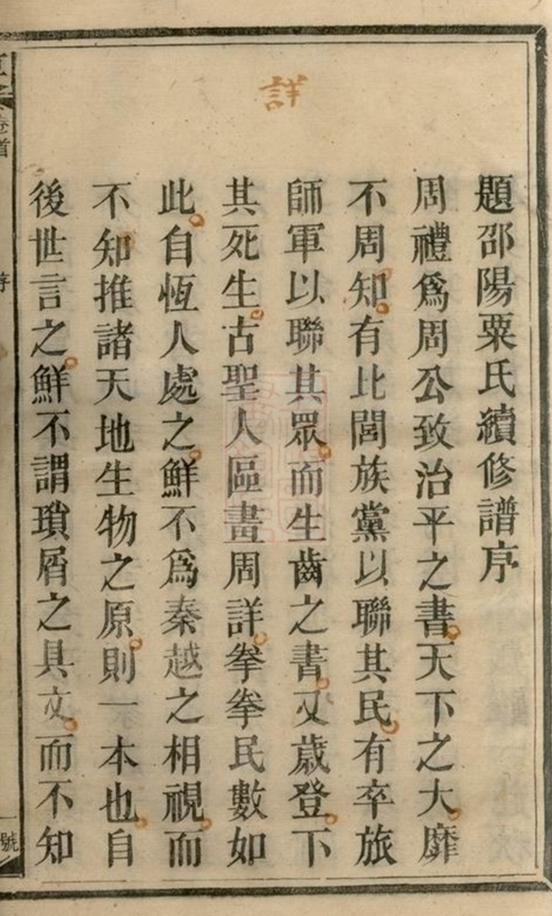 詳
題邵陽粟氏續修譜序
周禮爲周公致治平之書天下之大靡
不周知有比閭族黨以聯其民有卒旅
師軍以聯其眾而生齒之書又歲登下
其死生古聖人區畫周詳拳拳民數如
此自恆人處之鮮不爲秦越之相視而
不知推諸天地生物之原則一本也自
後世言之鮮不謂瑣屑之具文而不知
卷首
序
一
號